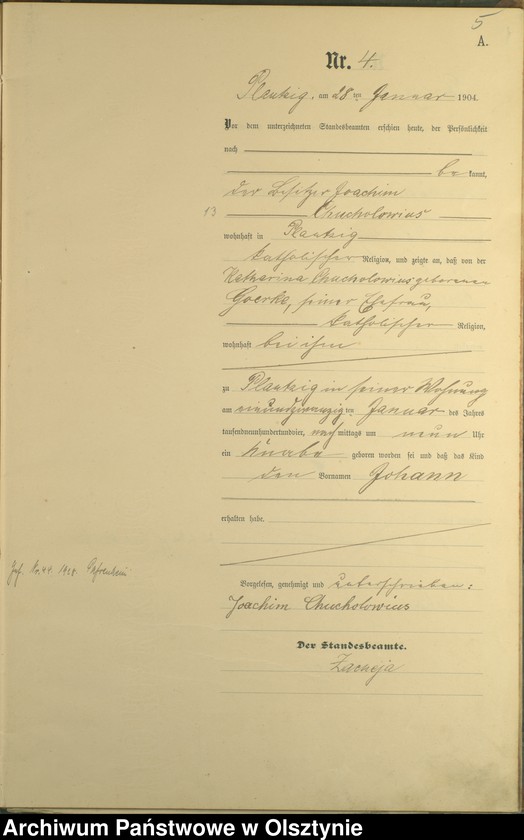 5
A.
Nr. 4.
Plautzig, am 28 ten Januar 1904.
Vor dem unterzeichneten Standesbeamten erschien heute, der Persönlichkeit
nach
be kannt,
der Besitzer Joachim
13 Chucholowius
wohnhaft in Plautzig
katholischer Religion, und zeigte an, daß von der
Katharina Chucholowius geborenen
Goerke, seiner Ehefrau,
katholischer Religion,
wohnhaft bei ihm
zu Plautzig in seiner Wohnung
am ten Januar des Jahres
tausendneunhundertundvier, nachmittags um neun Uhr
ein Knabe geboren worden sei und daß das Kind
den Vornamen Johann
erhalten habe.
Vorgelesen, genehmigt und unterschrieben:
Joachim Chucholowius
Der Standesbeamte.
Zacheja
Archiwum Państwowe w Olsztynie